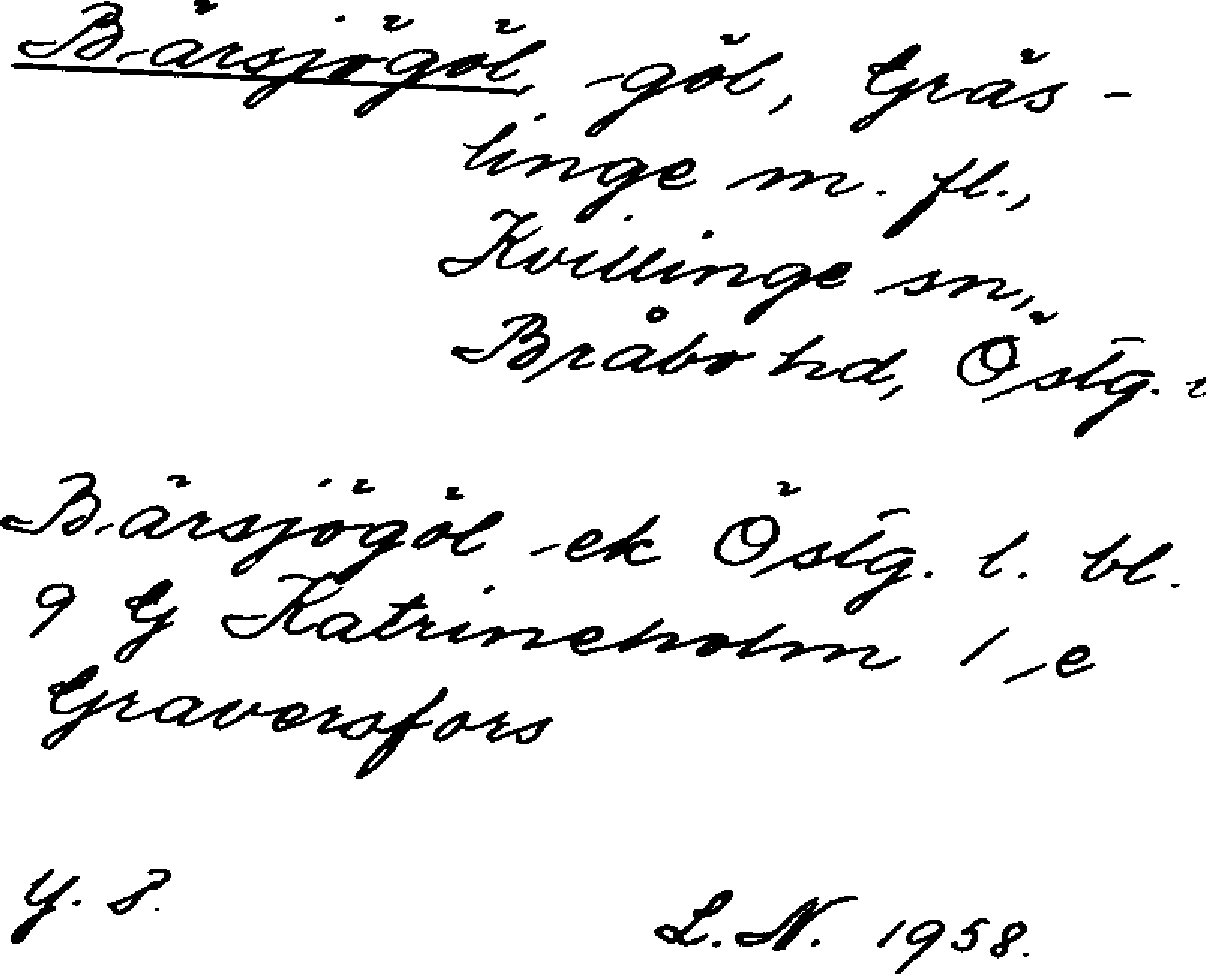 Bärsjögöl, -göl, Gräs-
linge m. fl.,
Kvillinge sn,
Bråbo hd, Östg.
Bärsjögöl -ek Östg. l. bl.
9 G Katrineholm 1, e
Graversfors
y. S.
L.N. 1958.